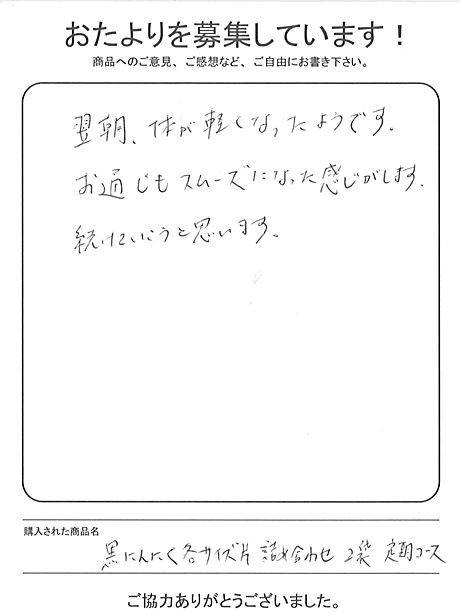 おたよりを募集しています！
商品へのご意見、ご感想など、ご自由にお書き下さい。
翌朝、体が軽くなったようです。
お通じもスムーズになった感じがします。
続けていこうと思います。
購入された商品名
黒にんにく各サイズ片 詰め合わせ 2袋 定期コース
ご協力ありがとうございました。